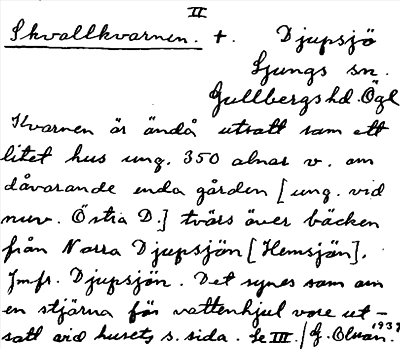 II
Skvallkvarnen. +. Djupsjö
Ljungs sn.
Gullbergs hd. Ögl
Kvarnen är ändå utsatt som ett
litet hus ung. 350 alnar v. om
dåvarande enda gården [ung. vid
nuv. Östra D.] tvärs över bäcken
från Norra Djupsjön [Hemsjön].
Jmfr. Djupsjön. Det synes som om
en stjärna för vattenhjul vore ut-
satt vid husets s. sida. Se III. / G. Olson. 1937